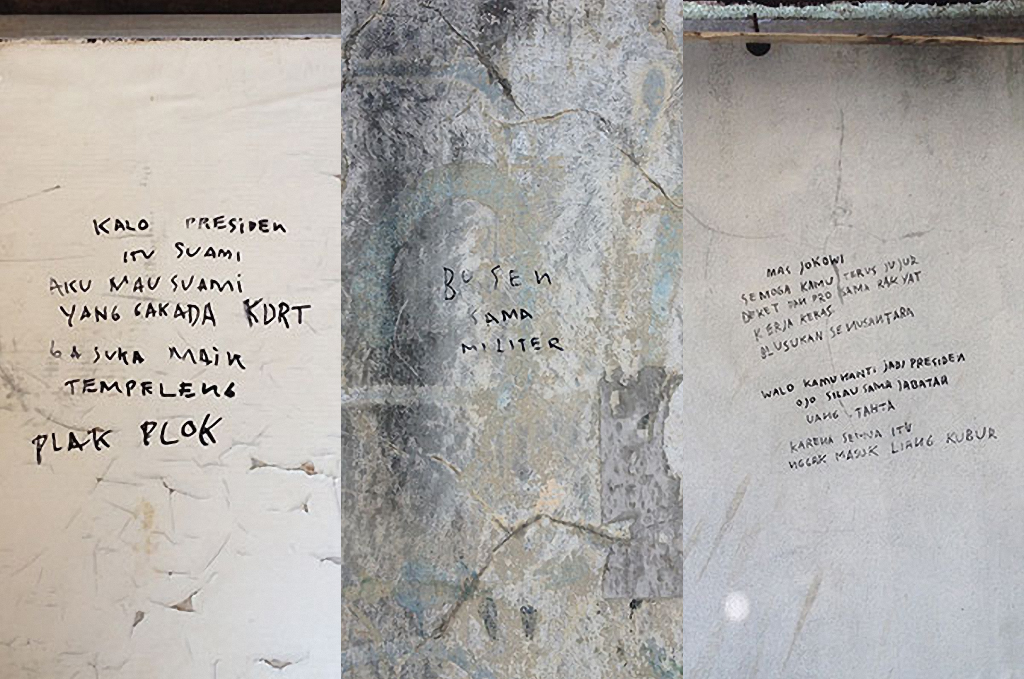 KALO PRESIDEN
ITU SUAMI
AKU MAU SUAMI
YANG GAKADA KDRT
GA SUKA MAIN
TEMPELENG
PLAK PLOK
BOSEN
SAMA
MILITER
MAS JOKOWI
SEMOGA KAMU TERUS JUJUR
DEKET DAN PRO SAMA RAKYAT
KERJA KERAS
BLUSUKAN SENUSANTARA
WALO KAMU NANTI JADI PRESIDEN
OJO SILAU SAMA JABATAN
UANG TAHTA
KARENA SEMUA ITU
NGGAK MASUK LIANG KUBUR